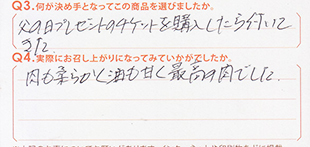 Q3.何が決め手となってこの商品を選びましたか。
父の日プレゼントのチケットを購入したら付いて
きた
Q4.実際にお召し上がりになってみていかがでしたか。
肉も柔らかく油も甘く最高の肉でした